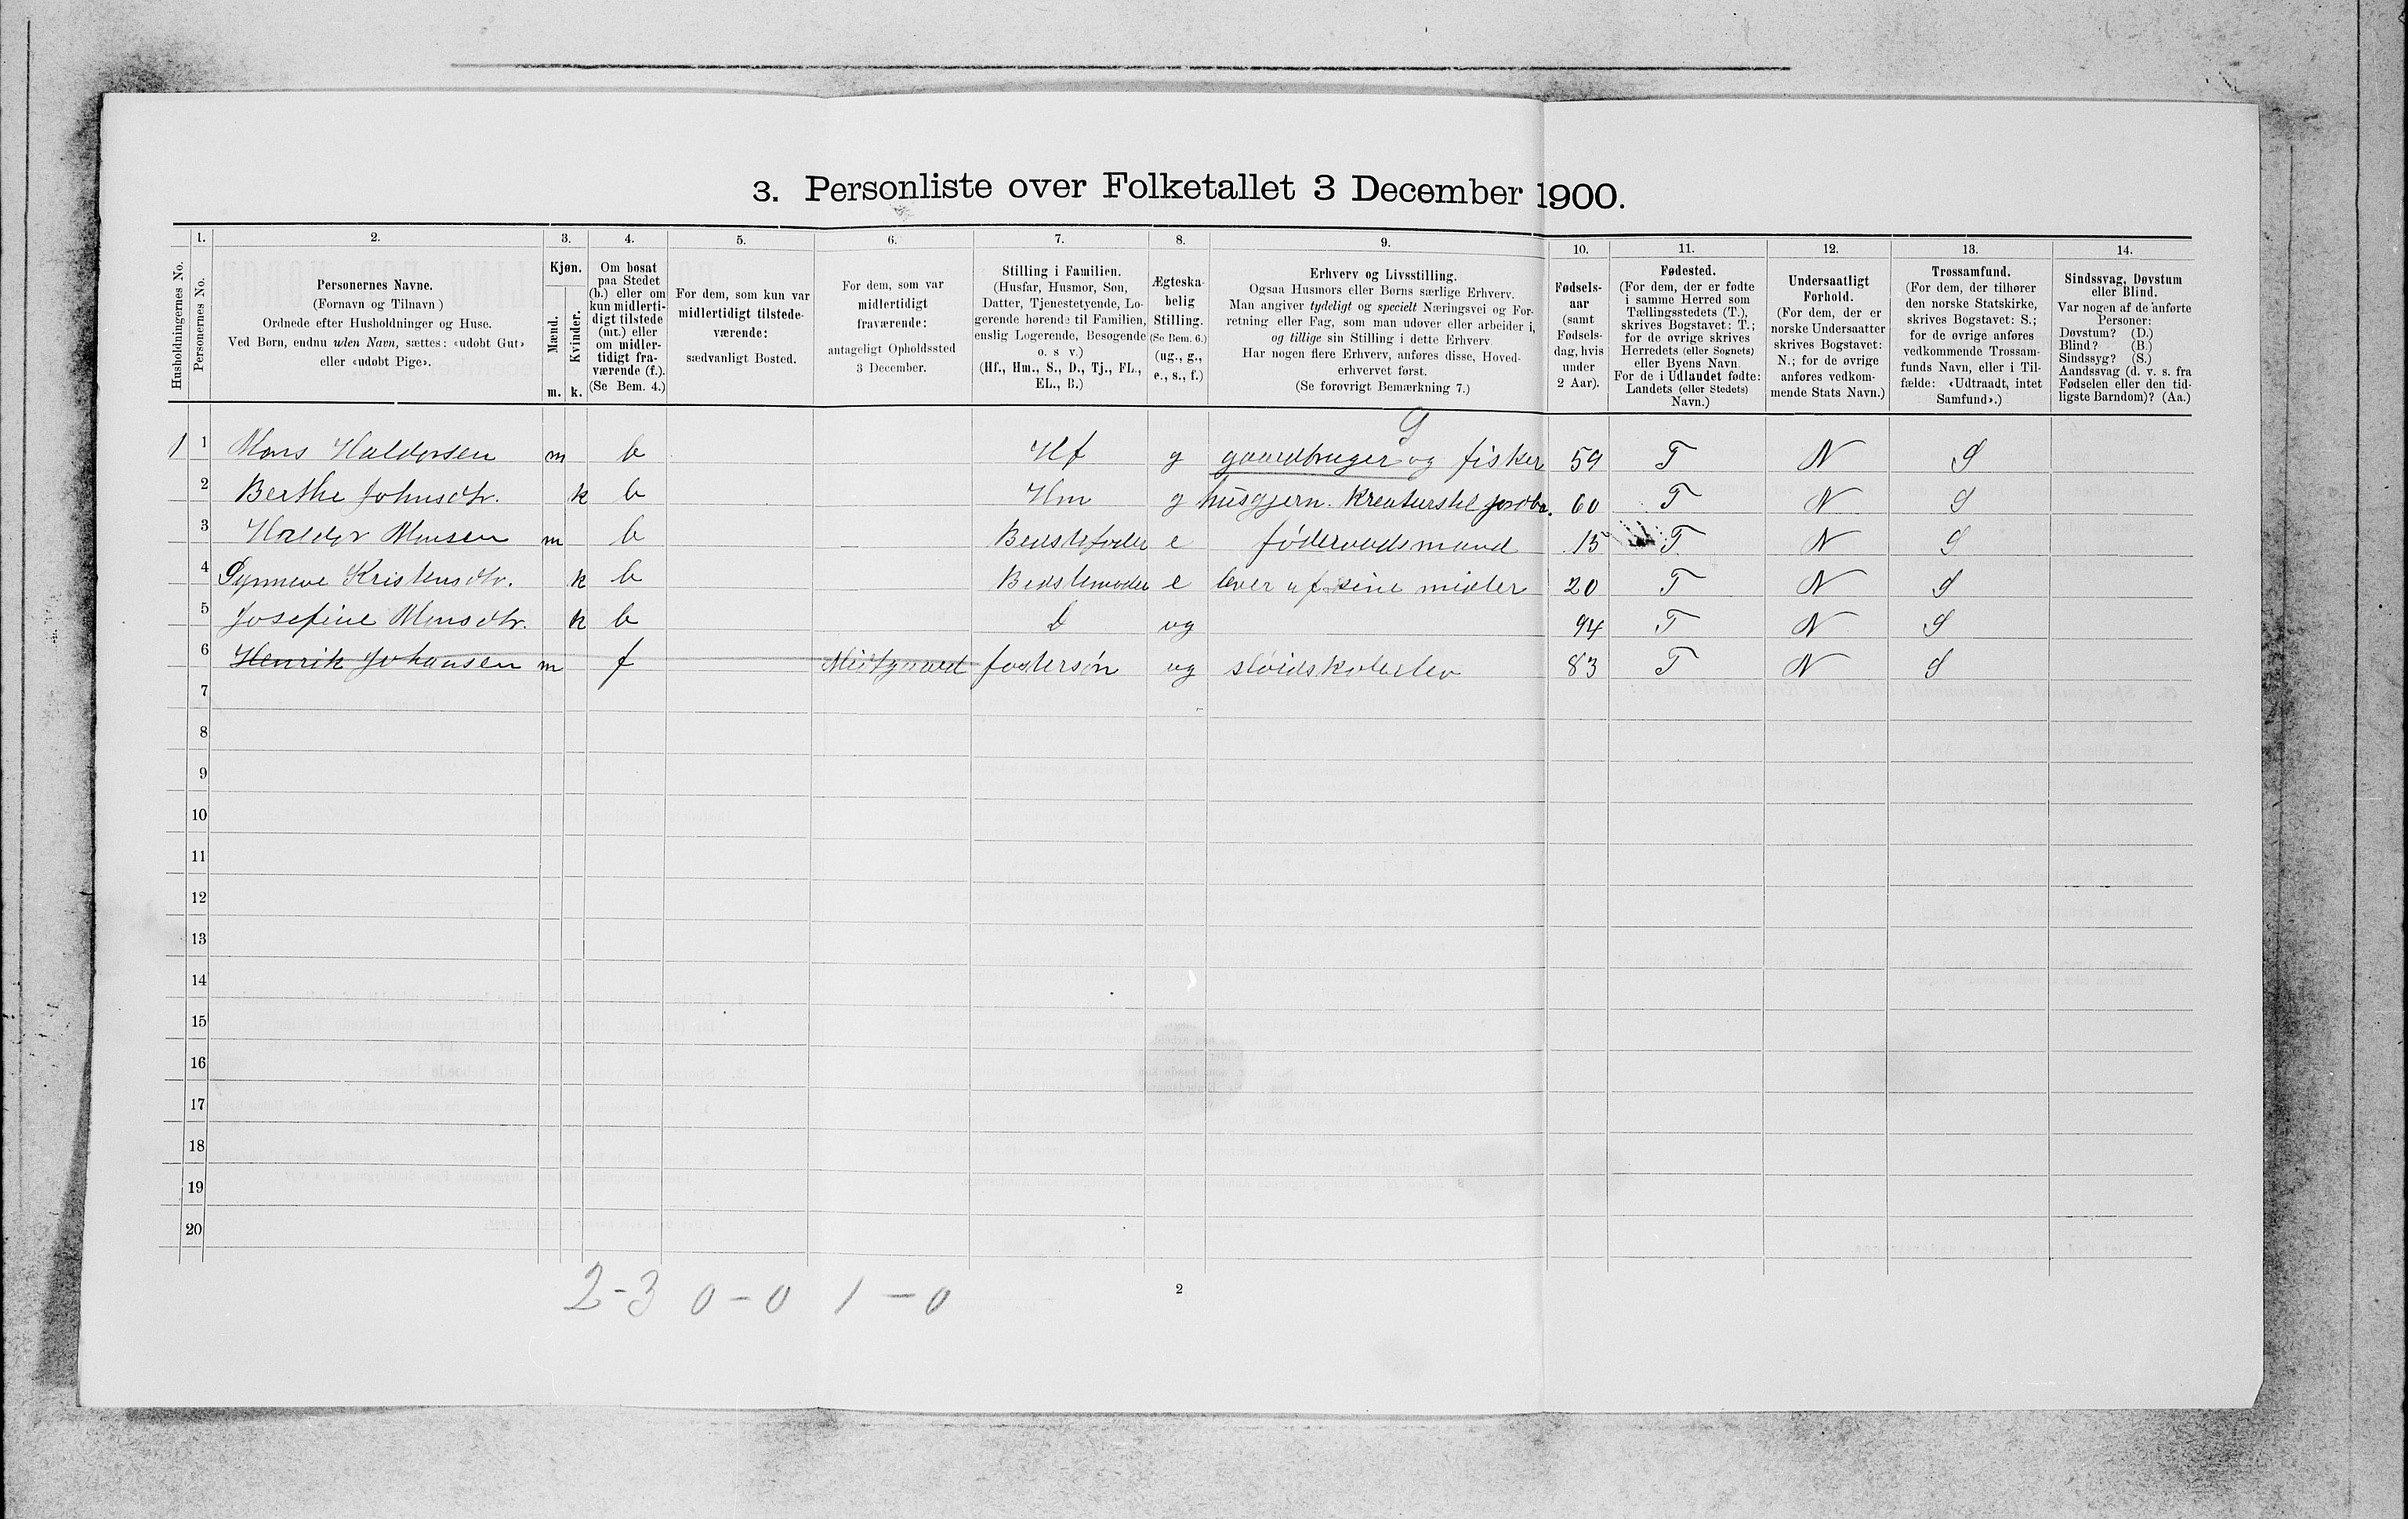 3. Personliste over Folketallet 3 December 1900.
Husholdningernes No.
1.
Personernes No.
2.
Personernes Navne.
(Fornavn og Tilnavn)
Ordnede efter Husholdninger og Huse.
Ved Børn, endnu uden Navn, sættes: «udøbt Gut»
eller «udøbt Pige».
3.
Kjøn.
Mænd.
Kvinder.
m. k.
4.
Om bosat
paa Stedet
(b.) eller om
kun midlerti-
digt tilstede
(mt.) eller
om midler-
tidigt fra-
værende (f.).
(Se Bem. 4.)
5.
For dem, som kun var
midlertidigt tilstede-
værende:
sædvanligt Bosted.
6.
For dem, som var
midlertidigt
fraværende:
antageligt Opholdssted
3 December.
7.
Stilling i Familien.
(Husfar, Husmor, Søn,
Datter, Tjenestetyende, Lo-
gerende hørende til Familien,
enslig Logerende, Besøgende
o. s v.)
(Hf., Hm., S., D., Tj., FL.,
EL., B.)
8.
Ægteska-
belig
Stilling.
(Se Bem. 6.)
(ug., g.,
e., s., f.)
9.
Erhverv og Livsstilling.
Ogsaa Husmors eller Børns særlige Erhverv.
Man angiver tydeligt og specielt Næringsvei og For-
retning eller Fag, som man udøver eller arbeider i,
og tillige sin Stilling i dette Erhverv.
Har nogen flere Erhverv, anføres disse, Hoved-
erhvervet først.
(Se forøvrigt Bemærkning 7.)
10.
Fødsels-
aar
(samt
Fødsels-
dag, hvis
under
2 Aar).
11.
Fødested.
(For dem, der er fødte
i samme Herred som
Tællingsstedets (T.),
skrives Bogstavet: T.;
for de øvrige skrives
Herredets (eller Sognets)
eller Byens Navn.
For de i Udlandet fødte:
Landets (eller Stedets)
Navn.)
12.
Undersaatligt
Forhold.
(For dem, der er
norske Undersaatter
skrives Bogstavet:
N.; for de øvrige
anføres vedkom-
mende Stats Navn.)
13.
Trossamfund.
(For dem, der tilhører
den norske Statskirke,
skrives Bogstavet: S.;
for de øvrige anføres
vedkommende Trossam-
funds Navn, eller i Til-
fælde: «Udtraadt, intet
Samfund».)
14.
Sindssvag, Døvstum
eller Blind.
Var nogen af de anførte
Personer:
Døvstum? (D.)
Blind? (B.)
Sindssyg? (S.)
Aandssvag (d. v. s. fra
Fødselen eller den tid-
ligste Barndom)? (Aa.)
1 1 Mons Haldorsen m b Hf g gaardbruger og fisker 59 T N S
2 Berthe Johnsdtr. k b Hm g husgjern. Kreaturstel jordbr. 60 T N S
3 Haldor Monsen m b Bedstefader e føderaadsmand 15 T N S
4 Synneve Kristensdtr. k b Bedstemoder e lever af sine midler 20 T N S
5 Josefine Monsdtr. k b D ug 94 T N S
6 Henrik Johansen m f fostersøn ug sløidskoleelev 83 T N S
7
8
9
10
11
12
13
14
15
16
17
18
19
20
2-3 0-0 1-0
2